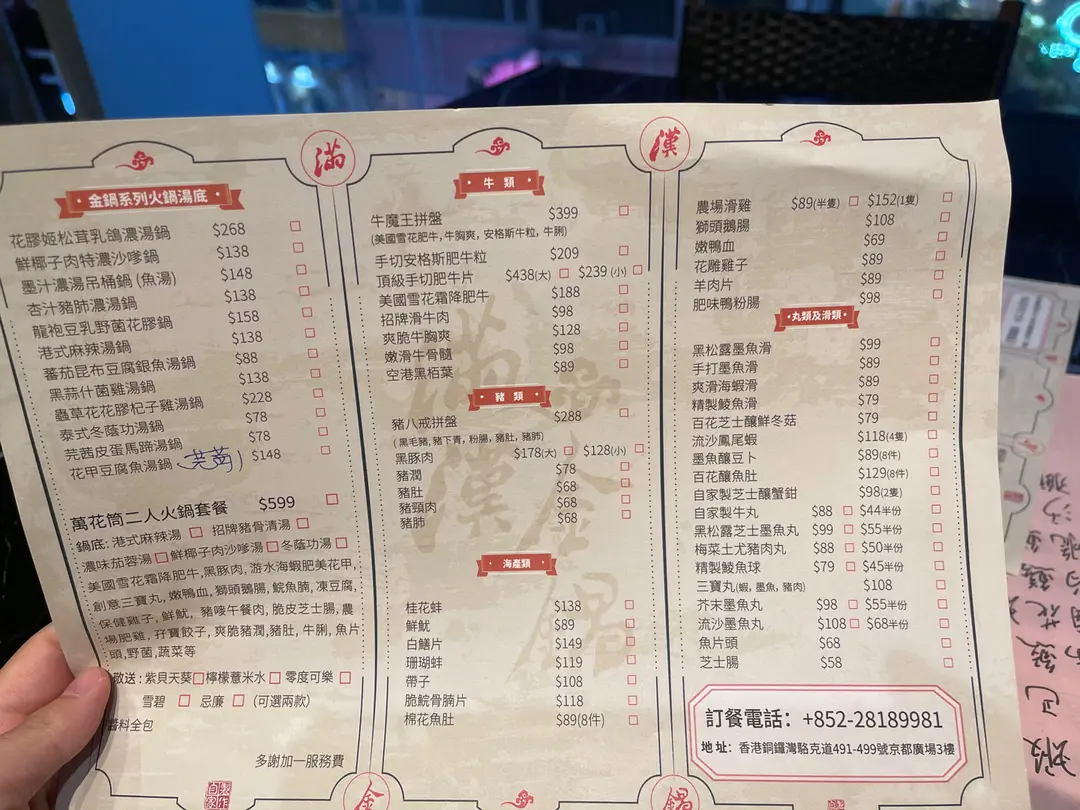 滿
漢
金鍋系列火鍋湯底
花膠姬松茸乳鴿濃湯鍋 $268
鮮椰子肉特濃沙嗲鍋 $138
墨汁濃湯吊桶鍋 (魚湯) $148
杏汁豬肺濃湯鍋 $138
龍袍豆乳野菌花膠鍋 $158
港式麻辣湯鍋 $138
蕃茄昆布豆腐銀魚湯鍋 $88
黑蒜什菌雞湯鍋 $138
蟲草花花膠杞子雞湯鍋 $228
泰式冬蔭功湯鍋 $78
芫茜皮蛋馬蹄湯鍋 $78
花甲豆腐魚湯鍋 $148
萬花筒二人火鍋套餐 $599
鍋底: 港式麻辣湯 招牌豬骨清湯
濃味茄蓉湯 鮮椰子肉沙嗲湯 冬蔭功湯
美國雪花霜降肥牛, 黑豚肉, 游水海蝦肥美花甲,
創意三寶丸, 嫩鴨血, 獅頭鵝腸, 鯇魚腩, 凍豆腐,
保健雞子, 鮮魷, 豬嘜午餐肉, 脆皮芝士腸, 農
場肥雞, 孖寶餃子, 爽脆豬潤, 豬肚, 牛脷, 魚片
頭, 野菌, 蔬菜等
敬送 : 紫貝天葵 檸檬薏米水 零度可樂
雪碧 忌廉 (可選兩款)
醬料全包
多謝加一服務費
牛 類
牛魔王拼盤 $399
(美國雪花肥牛, 牛胸爽, 安格斯牛粒, 牛脷)
手切安格斯肥牛粒 $209
頂級手切肥牛片 $438(大) $239 (小)
美國雪花霜降肥牛 $188
招牌滑牛肉 $98
爽脆牛胸爽 $128
嫩滑牛骨髓 $98
空港黑栢葉 $89
豬 類
豬八戒拼盤 $288
( 黑毛豬, 豬下青, 粉腸, 豬肚, 豬肺)
黑豚肉 $178(大) $128(小)
豬潤 $78
豬肚 $68
豬頸肉 $68
豬肺 $68
海產類
桂花蚌 $138
鮮魷 $89
白鱔片 $149
珊瑚蚌 $119
帶子 $108
脆鯇骨腩片 $118
棉花魚肚 $89(8件)
農場滑雞 $89(半隻) $152(1隻)
獅頭鵝腸 $108
嫩鴨血 $69
花雕雞子 $89
羊肉片 $89
肥味鴨粉腸 $98
丸類及滑類
黑松露墨魚滑 $99
手打墨魚滑 $89
爽滑海蝦滑 $89
精製鯪魚滑 $79
百花芝士釀鮮冬菇 $79
流沙鳳尾蝦 $118(4隻)
墨魚釀豆卜 $89(8件)
百花釀魚肚 $129(8件)
自家製芝士釀蟹鉗 $98(2隻)
自家製牛丸 $88 $44半份
黑松露芝士墨魚丸 $99 $55半份
梅菜土尤豬肉丸 $88 $50半份
精製鯪魚球 $79 $45半份
三寶丸(蝦, 墨魚, 豬肉) $108
芥末墨魚丸 $98 $55半份
流沙墨魚丸 $108 $68半份
魚片頭 $68
芝士腸 $58
訂餐電話: +852-28189981
地址: 香港銅鑼灣駱克道491-499號京都廣場3樓
金
鍋